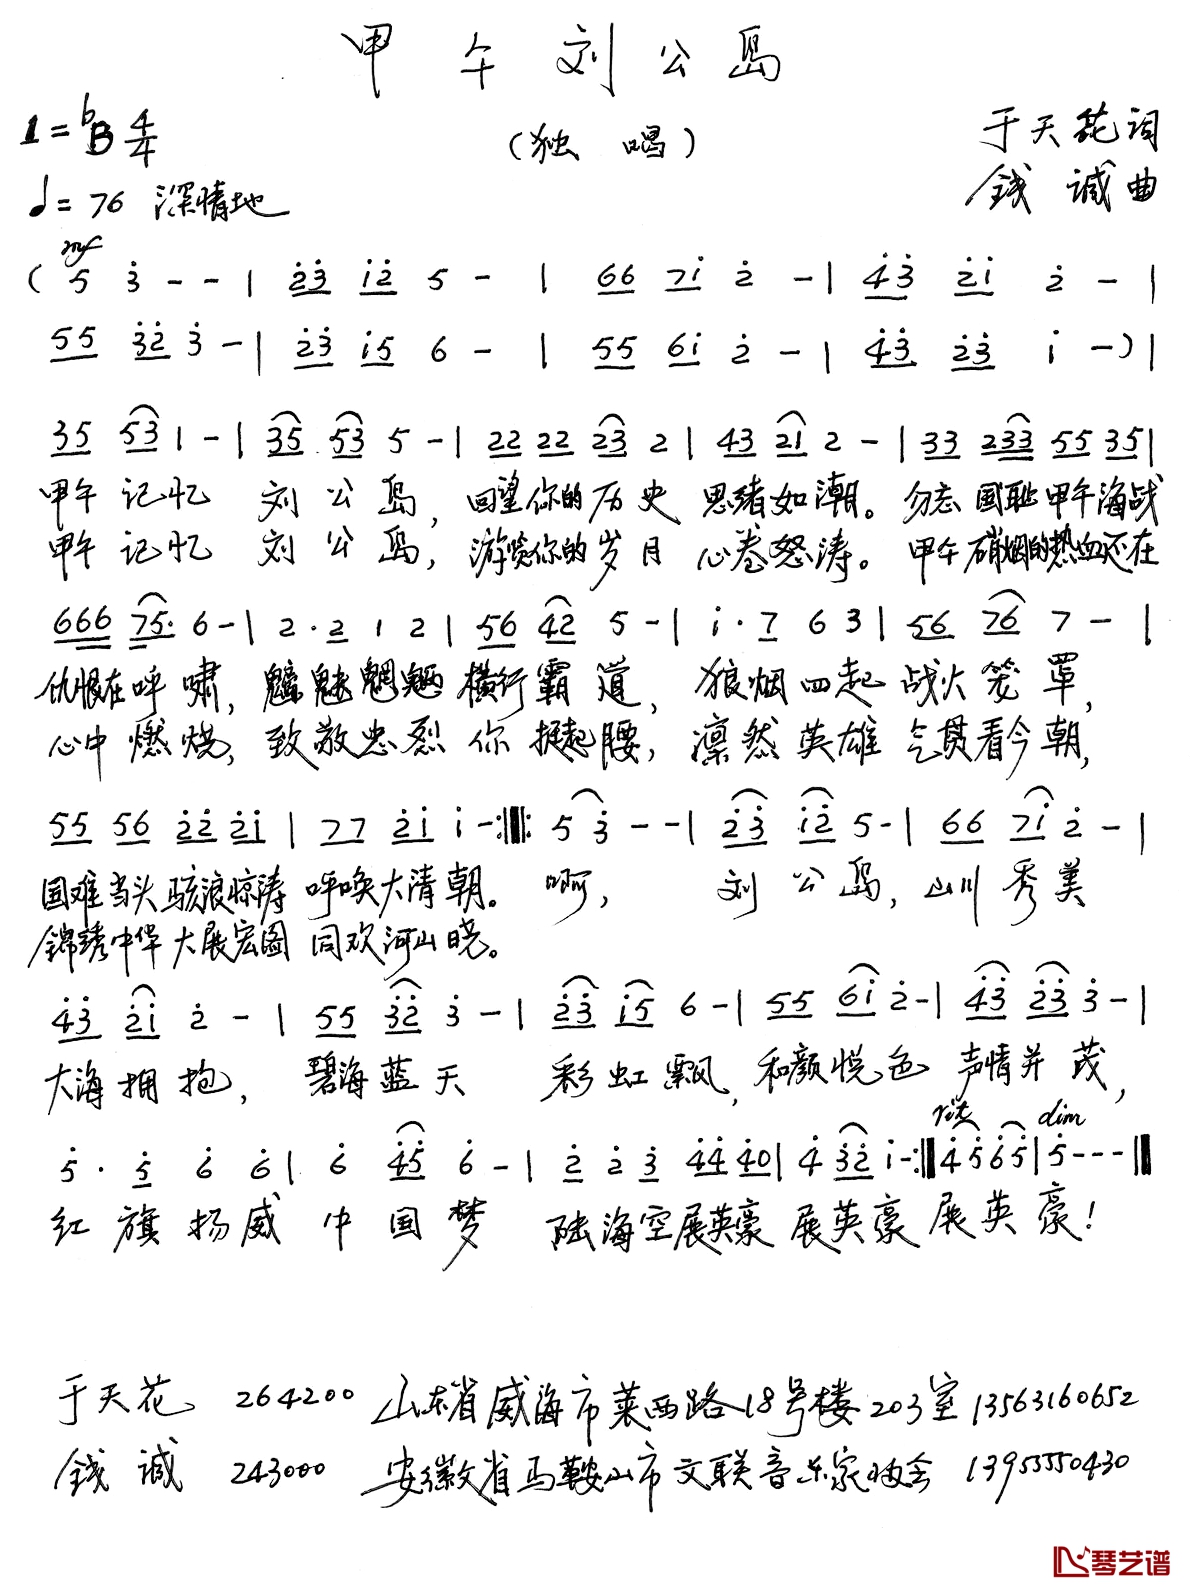 甲午刘公岛
1=♭B 4/4
(独唱)
于天花词
♩=76 深情地
钱诚曲
mf
(5 3̇ - - | 2̇3̇ 1̇2̇ 5 - | 66 71̇ 2̇ - | 4̇3̇ 2̇1̇ 2̇ - |
55 3̇2̇ 3̇ - | 2̇3̇ 1̇5 6 - | 55 61̇ 2̇ - | 4̇3̇ 2̇3̇ 1̇ -) |
35 53 1 - | 35 53 5 - | 22 22 23 2 | 43 21 2 - | 33 233 55 35 |
甲午记忆 刘公岛, 回望你的历史 思绪如潮。 勿忘国耻甲午海战
甲午记忆 刘公岛, 游览你的岁月 心卷怒涛。 甲午硝烟的热血还在
666 75· 6 - | 2·2 1 2 | 56 42 5 - | 1̇·7 6 3 | 56 76 7 - |
仇恨在呼啸, 魑魅魍魉 横行霸道, 狼烟四起 战火笼罩,
心中燃烧, 致敬忠烈 你挺起腰, 凛然英雄 气贯看今朝,
55 56 2̇2̇ 2̇1̇ | 77 2̇1̇ 1̇ - :‖: 5 3̇ - - | 2̇3̇ 1̇2̇ 5 - | 66 71̇ 2̇ - |
国难当头骇浪惊涛 呼唤大清朝。 啊, 刘公岛, 山川秀美
锦绣中华大展宏图 同欢河山晓。
4̇3̇ 2̇1̇ 2̇ - | 55 3̇2̇ 3̇ - | 2̇3̇ 1̇5 6 - | 55 61̇ 2̇ - | 4̇3̇ 2̇3̇ 3̇ - |
大海拥抱, 碧海蓝天 彩虹飘, 和颜悦色 声情并茂,
rit dim
5̇·5̇ 6̇ 6̇ | 6̇ 4̇5̇ 6̇ - | 2̇ 2̇ 3̇ 4̇4̇ 4̇0 | 4̇ 3̇2̇ 1̇ - :‖ 4̇ 5̇ 6̇ 5̇ | 5̇ - - - ‖
红旗扬威 中国梦 陆海空展英豪 展英豪 展英豪!
于天花 264200 山东省威海市莱西路18号楼203室 13563160652
钱诚 243000 安徽省马鞍山市文联音乐家协会 13955550430
琴艺谱